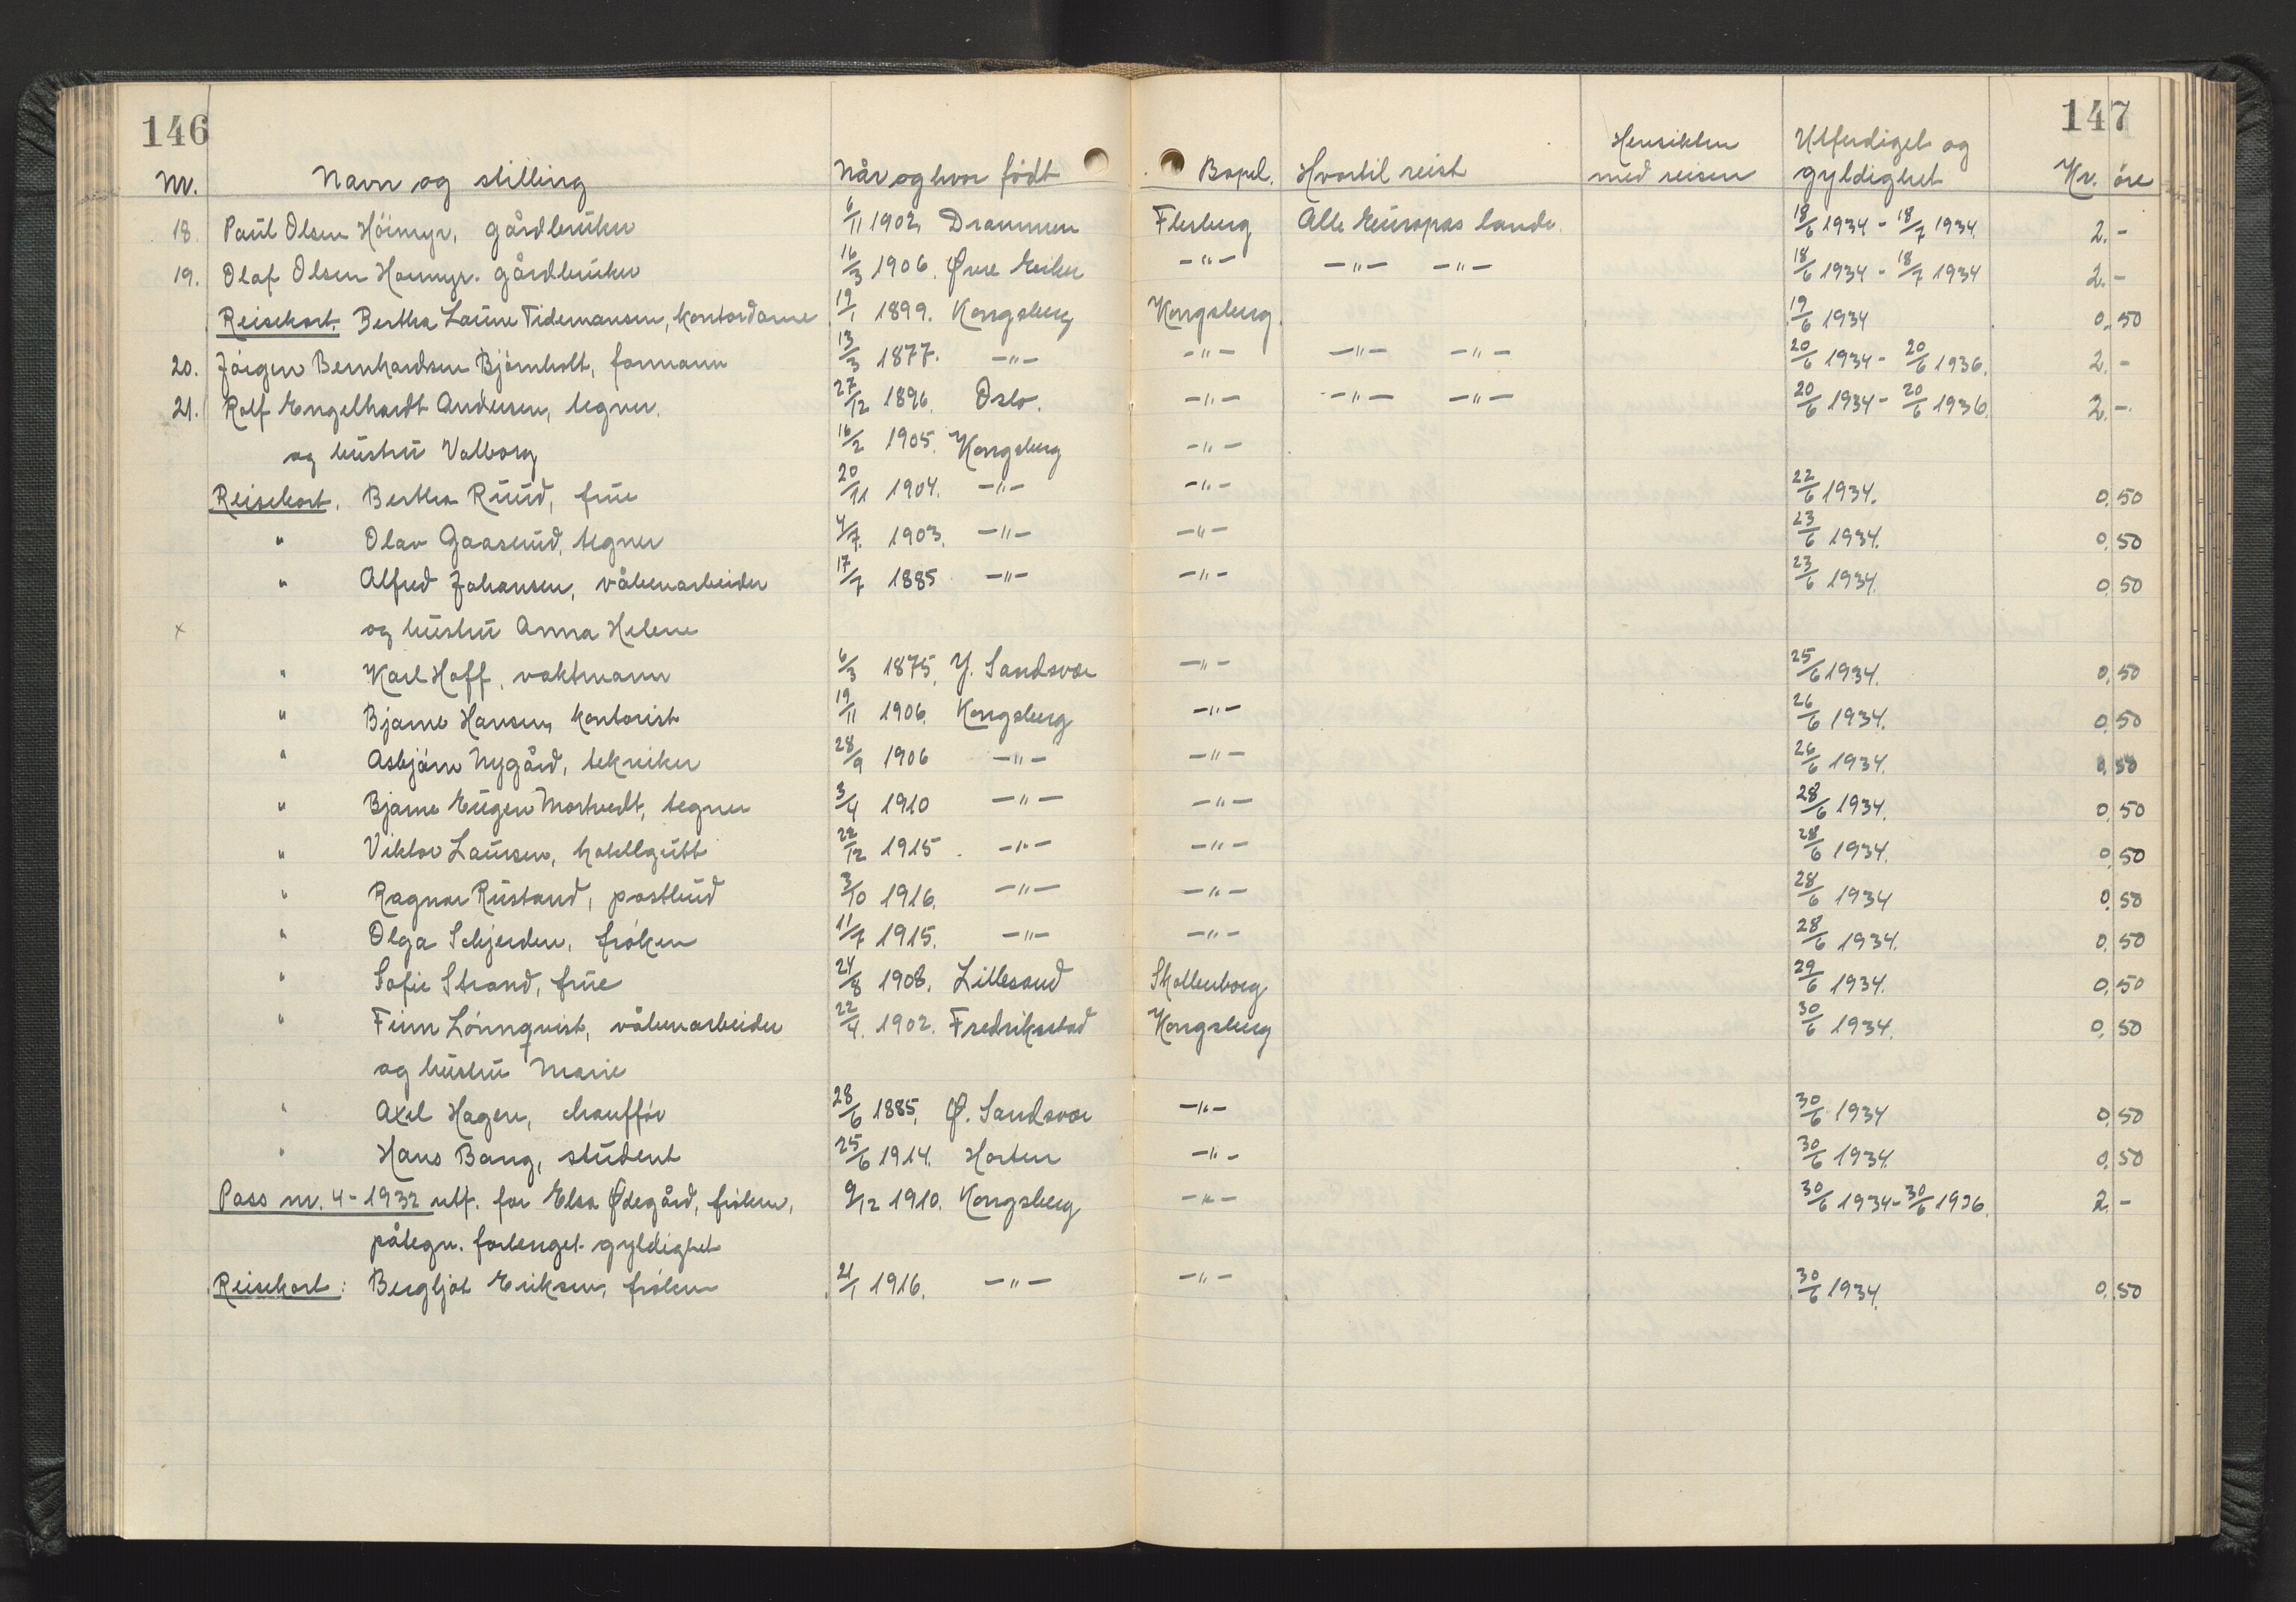 146
147
Nr. Navn og stilling Når og hvor født Bopel. Hvortil reist Hensikten med reisen Utferdiget og gyldighet Kr. øre
18. Paul Olsen Höimyr, gårdbruker 6/11 1902, Drammen Flesberg Alle Europas lande. 18/6 1934 - 18/7 1934. 2. -
19. Olaf Olsen Hormyr. gårdbruker 16/3 1906. Øvre Eiker -"- -"- -"- 18/6 1934 - 18/7 1934 2. -
Reisekort. Bertha Laura Tidemansen, kontordame 19/1 1899. Kongsberg Kongsberg. 19/6 1934 0,50
20. Jörgen Bernhardsen Björnholt, formann 13/3 1877. -"- -"- -"- -"- 20/6 1934 - 20/6 1936. 2. -
21. Rolf Engelhardt Andersen, tegner. 27/12 1896. Oslo. -"- -"- -"- 20/6 1934 - 20/6 1936. 2. -
og hustru Valborg 16/2 1905. Kongsberg -"-
Reisekort. Bertha Ruud, frue 20/11 1904. -"- -"- 22/6 1934. 0,50
" Olav Gaaserud, tegner 4/7. 1903. -"- -"- 23/6 1934. 0,50
" Alfred Johansen, våbenarbeider 17/7 1885 -"- -"- 23/6 1934. 0,50
x og hustru Anna Helene
" Karl Hoff, vaktmann 6/3 1875, Y. Sandsvær -"- 25/6 1934. 0,50
" Bjarne Hansen, kontorist 19/11 1906. Kongsberg -"- 26/6 1934. 0,50
" Asbjörn Nygård, tekniker 28/9 1906 -"- -"- 26/6 1934. 0,50
" Bjarne Eugen Mortvedt, tegner 3/4 1910 -"- -"- 28/6 1934. 0,50
" Viktor Laursen, hotellgutt 22/12 1915. -"- -"- 28/6 1934. 0,50
" Ragnar Rustand, postbud 3/10 1916. -"- -"- 28/6 1934 0,50
" Olga Schjerden, fröken 11/7 1915. -"- -"- 28/6 1934. 0,50
" Sofie Strand, frue 24/8 1908. Lillesand Skollenborg 29/6 1934. 0,50
" Finn Lönnqvist, våbenarbeider 22/4. 1902. Fredrikstad Kongsberg 30/6 1934. 0,50
og hustru Marie
" Axel Hagen, chafför 28/6 1885, Ø. Sandsvær -"- 30/6 1934 0,50
" Hans Bang, student 25/6 1914. Horten -"- 30/6 1934. 0,50
Pass nr. 4 - 1932 utf. for Elsa Ødegård, fröken, 9/12 1910. Kongsberg -"- 30/6 1934 - 30/6 1936. 2. -
påtegn. forlenget gyldighet
Reisekort: Bergljot Eriksen, fröken 21/1 1916. -"- -"- 30/6 1934. 0,50